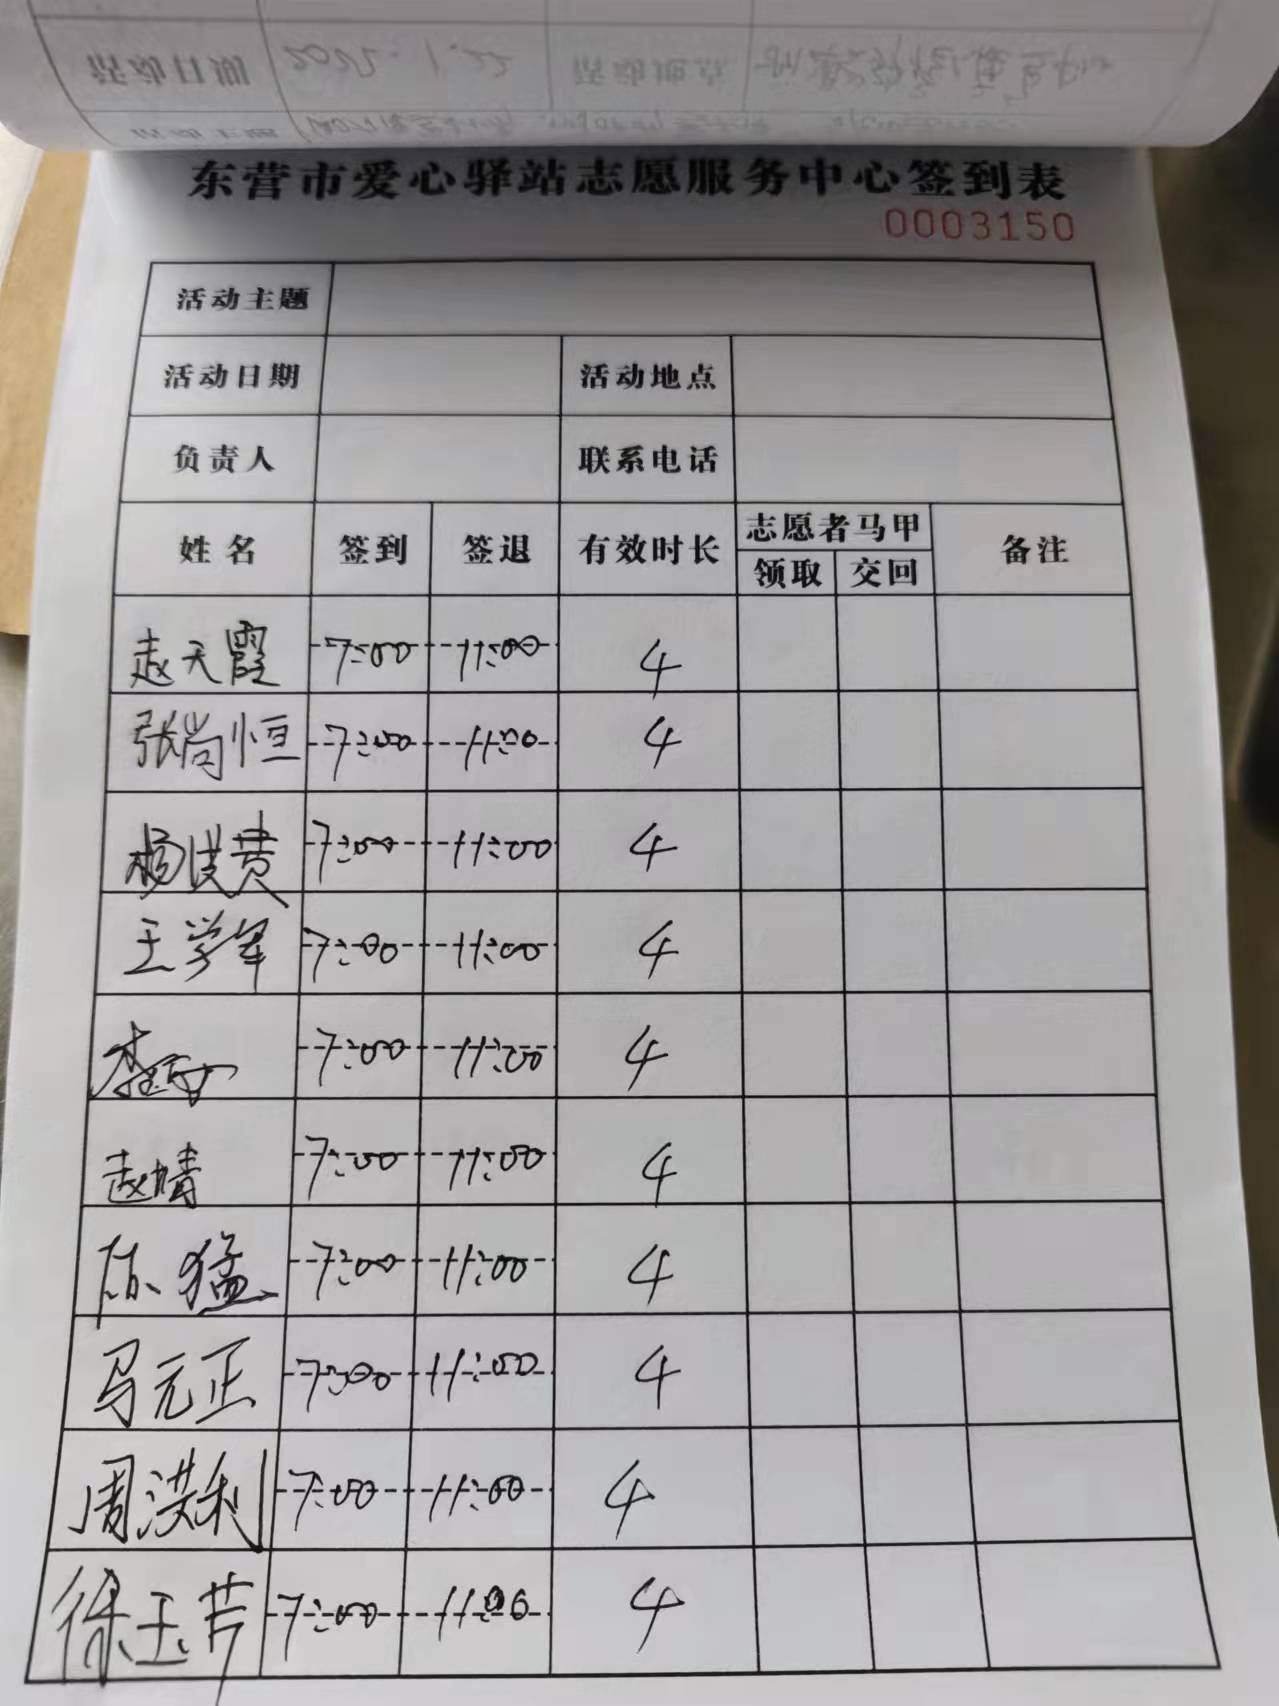 活动日期 2022.1.22 活动地点
东营市爱心驿站志愿服务中心签到表
0003150
活动主题
活动日期 活动地点
负责人 联系电话
姓名 签到 签退 有效时长 志愿者马甲 备注
领取 交回
赵天霞 7:00 11:00 4
张尚恒 7:00 11:00 4
杨洪贵 7:00 11:00 4
王学军 7:00 11:00 4
李 7:00 11:00 4
赵晴 7:00 11:00 4
陈猛 7:00 11:00 4
马元正 7:00 11:00 4
周洪利 7:00 11:00 4
徐玉芹 7:00 11:00 4